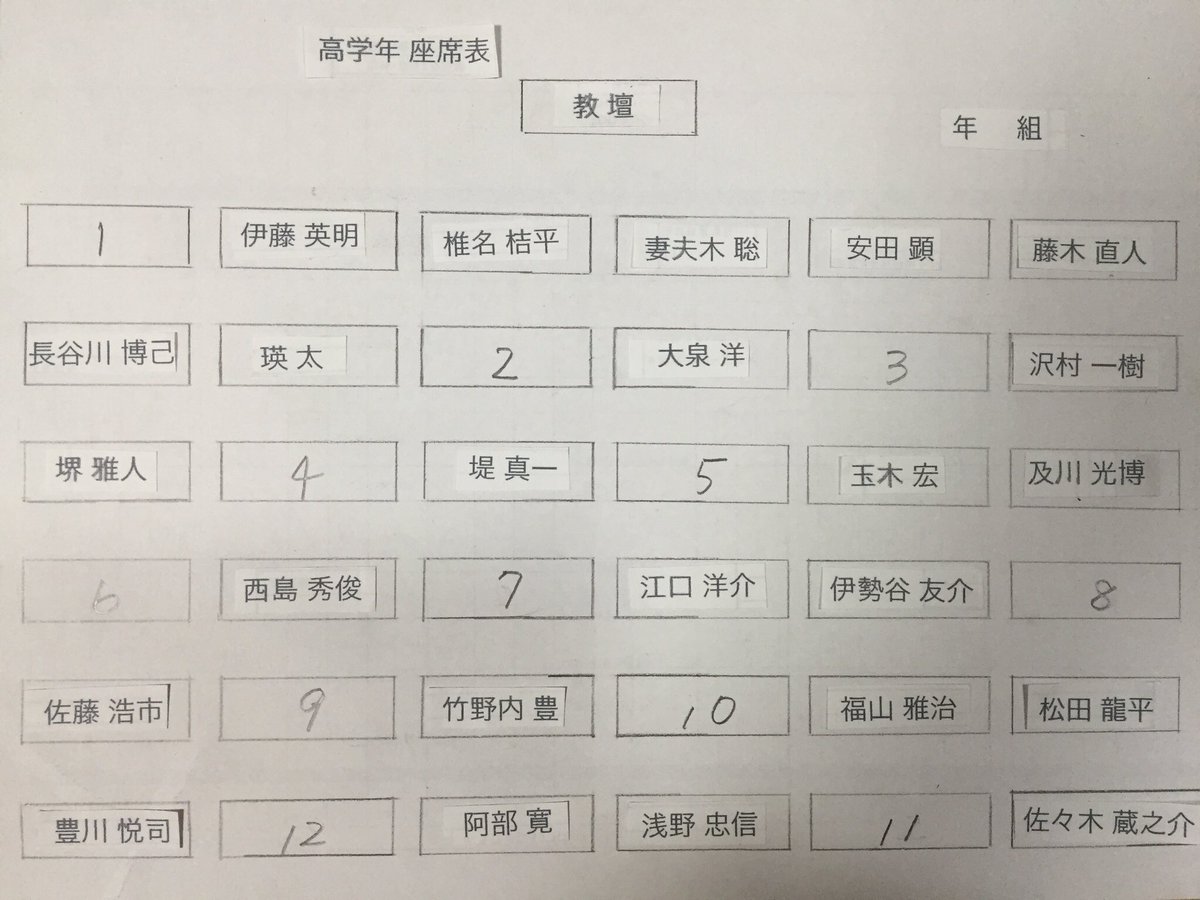 高学年 座席表
教壇
年 組
1 伊藤 英明 椎名 桔平 妻夫木 聡 安田 顕 藤木 直人
長谷川 博己 瑛太 2 大泉 洋 3 沢村 一樹
堺 雅人 4 堤 真一 5 玉木 宏 及川 光博
6 西島 秀俊 7 江口 洋介 伊勢谷 友介 8
佐藤 浩市 9 竹野内 豊 10 福山 雅治 松田 龍平
豊川 悦司 12 阿部 寛 浅野 忠信 11 佐々木 蔵之介